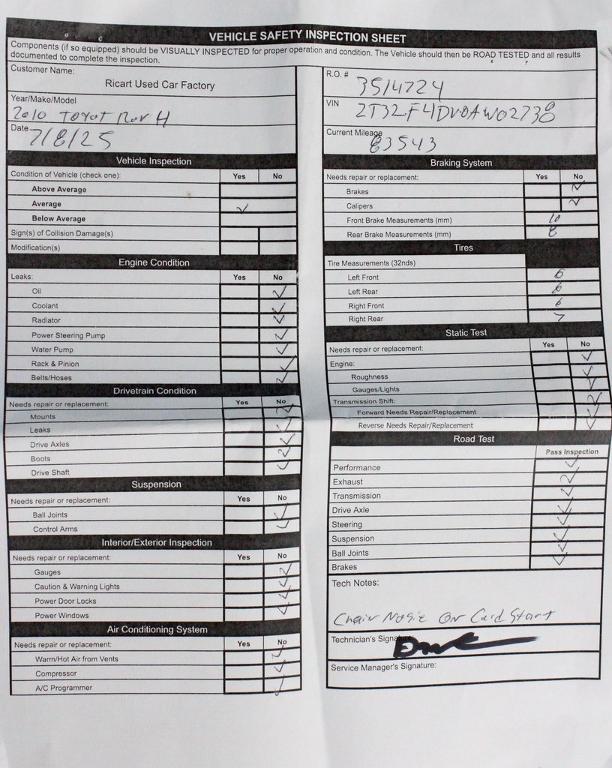 VEHICLE SAFETY INSPECTION SHEET
Components (if so equipped) should be VISUALLY INSPECTED for proper operation and condition. The Vehicle should then be ROAD TESTED and all results
documented to complete the inspection.
Customer Name:
Ricart Used Car Factory
Year/Make/Model
2010 Toyot Rav 4
Date 7/8/25
R.O. #
3514724
VIN
2T32F4DV0AW02738
Current Mileage
83543
Vehicle Inspection
Condition of Vehicle (check one): Yes No
Above Average
Average ✓
Below Average
Sign(s) of Collision Damage(s)
Modification(s)
Engine Condition
Leaks: Yes No
Oil ✓
Coolant ✓
Radiator ✓
Power Steering Pump ✓
Water Pump ✓
Rack & Pinion ✓
Belts/Hoses ✓
Drivetrain Condition
Needs repair or replacement: Yes No
Mounts ✓
Leaks ✓
Drive Axles ✓
Boots ✓
Drive Shaft ✓
Suspension
Needs repair or replacement: Yes No
Ball Joints ✓
Control Arms ✓
Interior/Exterior Inspection
Needs repair or replacement: Yes No
Gauges ✓
Caution & Warning Lights ✓
Power Door Locks ✓
Power Windows ✓
Air Conditioning System
Needs repair or replacement: Yes No
Warm/Hot Air from Vents ✓
Compressor ✓
A/C Programmer ✓
Braking System
Needs repair or replacement: Yes No
Brakes ✓
Calipers ✓
Front Brake Measurements (mm) 10
Rear Brake Measurements (mm) 8
Tires
Tire Measurements (32nds)
Left Front 6
Left Rear 6
Right Front 6
Right Rear 7
Static Test
Needs repair or replacement: Yes No
Engine: ✓
Roughness ✓
Gauges/Lights ✓
Transmission Shift: ✓
Forward Needs Repair/Replacement ✓
Reverse Needs Repair/Replacement ✓
Road Test
Pass Inspection
Performance ✓
Exhaust ✓
Transmission ✓
Drive Axle ✓
Steering ✓
Suspension ✓
Ball Joints ✓
Brakes ✓
Tech Notes:
Chair Nosie On Cold Start
Technician's Signature:
Service Manager's Signature: